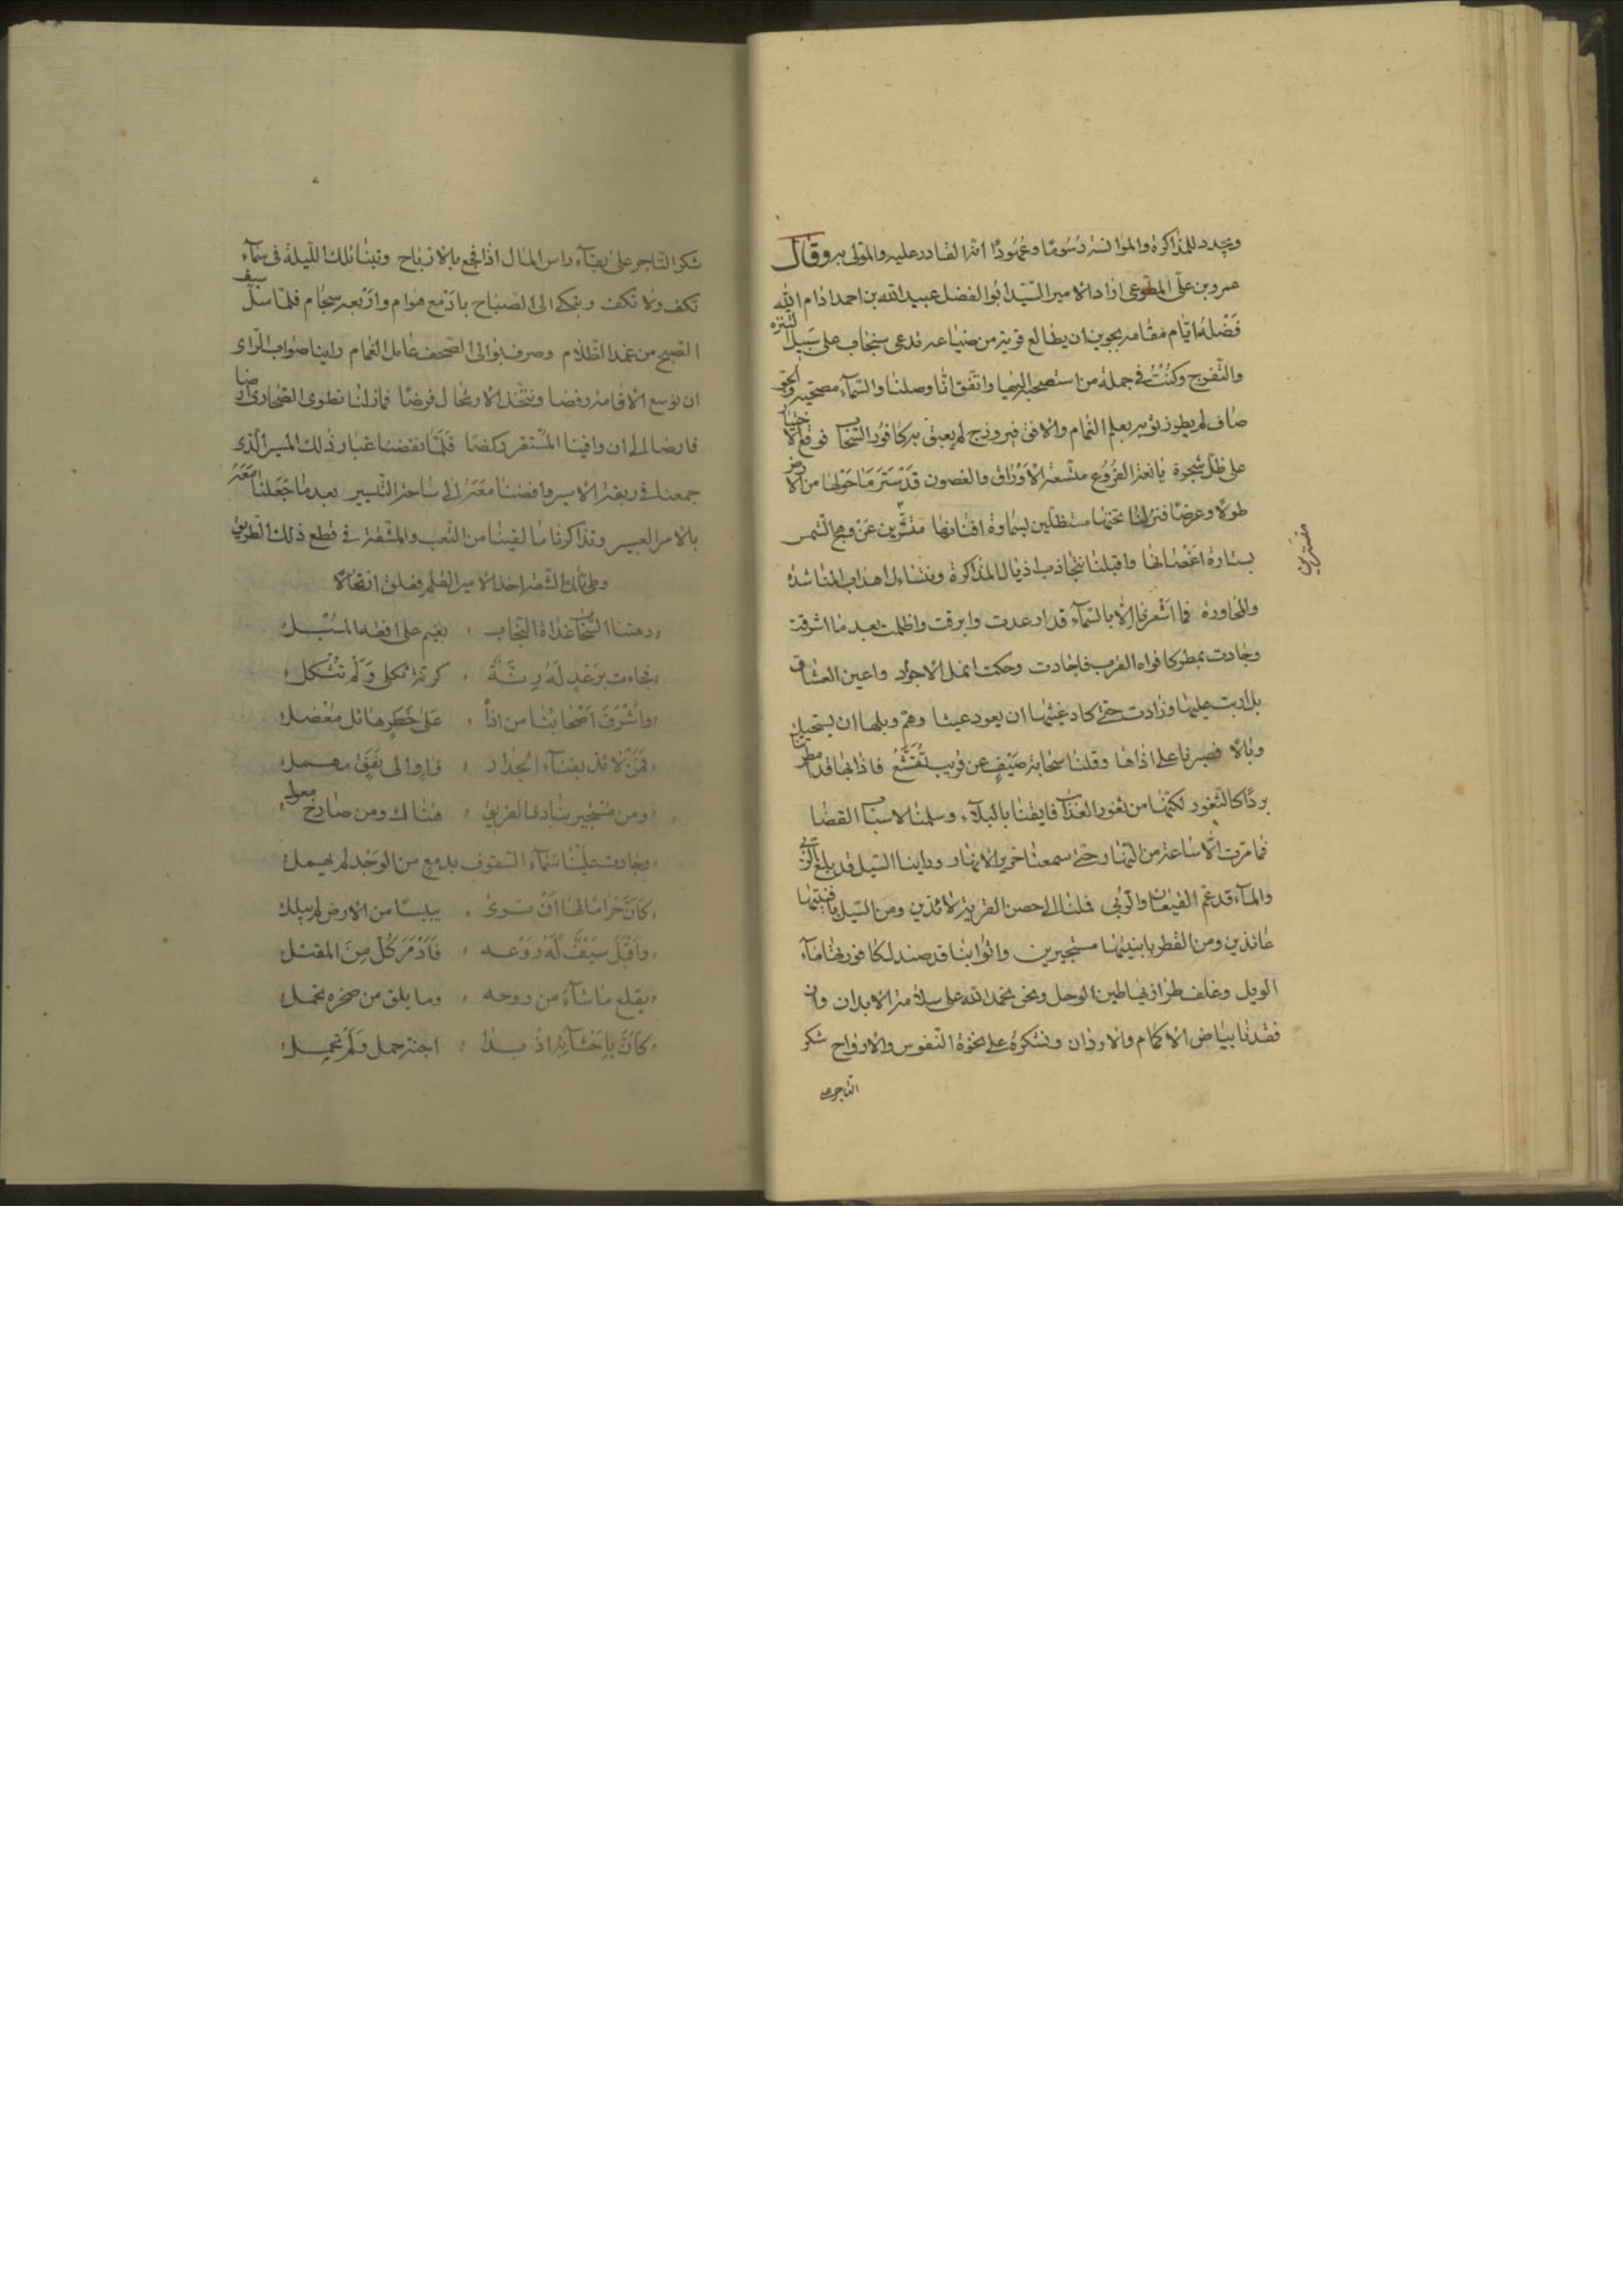 ويجدد للمذاكرة والموانسة رسوما وعهودا انه القادر عليه والمولى به وقال
عمرو بن على المطوعى اراد الامير السيد ابو الفضل عبيد الله بن احمد ادام الله
فضله ايام مقامه بجوين ان يطالع قرية من ضياعه تدعى سنجاب على سبيل التنزه
والتفرج وكنت فى جملة من استصحبه اليها واتفق انا وصلنا والسماء مصحية والجو
صاف لم يطرز ثوبه بعلم الغمام والافق فيروزج لم يعبق به كافور السحاب فوقع الاختيار
على ظل شجرة يانعة الفروع متسعة الاوراق والغصون قد سترت ما حولها من الارض
طولا وعرضا فنزلنا تحتها مستظلين بسماوة افنانها مستترين عن وهج الشمس
بستارة اغصانها واقبلنا نتجاذب اذيال المذاكرة ونتسالب اهداب المناشدة
والمحاورة فما اشعرنا الا بالسماء قد ارعدت وابرقت واظلمت بعد ما اشرقت
وجادت بمطر كافواه القرب فاجادت وحكت انمل الاجواد واعين العشاق
بل اربت عليها وزادت حتى كاد غيثها ان يعود عيثا وهم وبلها ان يستحيل
وبالا فصبرنا على اذاها وقلنا سحابة صيف عن قريب تقشع فاذا بها قد امطرتنا
بردا كالثغور لكنها من ثغور العذاب فايقنا بالبلاء وسلمنا لاسباب القضا
فما مرت الا ساعة من النهار حتى سمعنا خرير الانهار وراينا السيل قد بلغ الزبى
والماء قد غم القيعان والربى فملنا الى حصن القرية لائذين ومن السيل بافنيتها
عائذين ومن القطر بابنيتها مستجيرين واثوابنا قد صندل كافوريها ماء
الوبل وغلف طرازيها طين الوحل ونحن نحمد الله على سلامة الابدان وان
فقدنا بياض الاكمام والاردان ونشكره على نجوة النفوس والارواح شكر
التاجر
شكر التاجر على بقاء راس المال اذا فجع بالارباح وبتنا تلك الليلة فى سماء
تكف ولا تكف وتبكى الى الصباح بادمع هوام واربعة سجام فلما سل سيف
الصبح من غمد الظلام وصرف بوالى الصحف عامل الغمام راينا صواب الراى
ان نوسع الاقامة رفضا ونتخذ الارتحال فرضا فما زلنا نطوى الصحارى ارضا
فارضا الى ان وافينا المستقر ركضا فلما نفضنا غبار ذلك المسير الذى
جمعنا فى ربقة الاسير وافضنا معه الى ساحة التيسير بعد ما جعلنا معه
بالامر العسير وتذاكرنا ما لقينا من التعب والمشقة فى قطع ذلك الطريق
وطى تلك الشقة اخذ الامير القلم فعلق ارتجالا
دهتنا السحاب غداة النجاب ، بغيم على افقه المسبل
فجاءت برعد له رنة ، كرنة ثكلى ولم تثكل
واشرف اصحابنا من اذا ، على خطر هائل معضل
فمن لائذ بفناء الجدار ، واو الى نفق مهمل
ومن مستجير ينادى الغريق ، هناك ومن صارخ معول
وجادت علينا سماء السقوف بدمع من الوجد لم يهمل
كان حراما لها ان ترى ، يبيسا من الارض لم يبلل
واقبل سيف له روعه ، فادبر كل من المقتل
يقلع ما شاء من دوحه ، وما يلق من صخرة يحمل
كان باحشائه اذ بدا ، اجنة حمل ولم تحبل